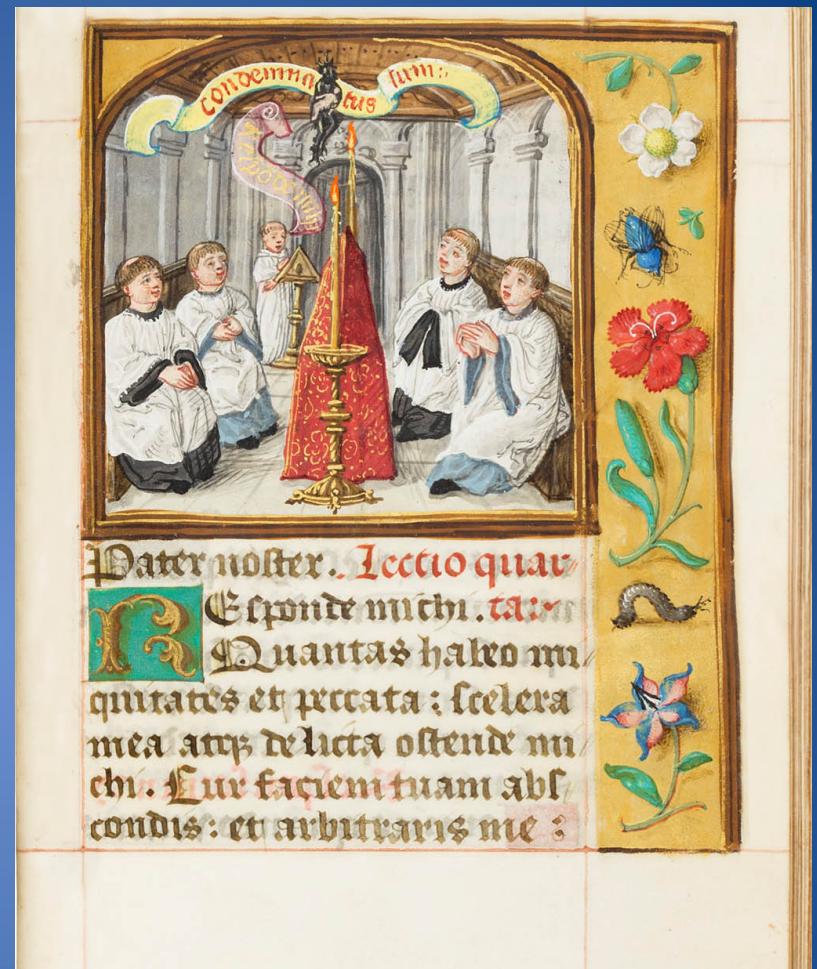 condemnatus sum:
Respōde michi
Pater noster. Lectio quar
Esponde michi. ta:
R Quantas habeo ini
quitates et peccata: scelera
mea atqꝫ delicta ostende mi
chi. Cur faciem tuam abs
condis: et arbitraris me :